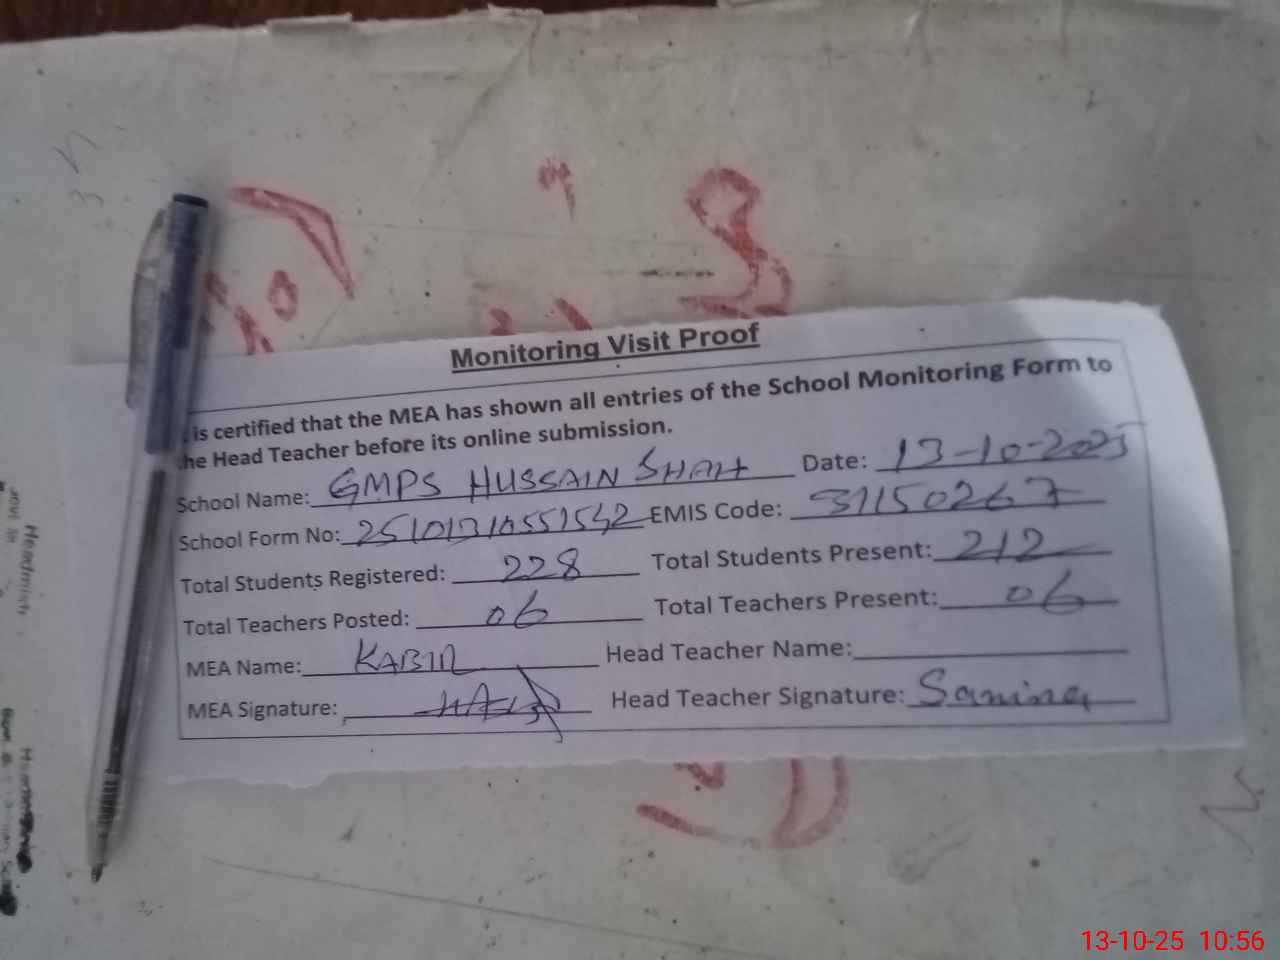 Monitoring Visit Proof
is certified that the MEA has shown all entries of the School Monitoring Form to
the Head Teacher before its online submission.
School Name: GMPS HUSSAIN SHAH Date: 13-10-2025
School Form No: EMIS Code: 31150267
Total Students Registered: 228 Total Students Present: 212
Total Teachers Posted: 06 Total Teachers Present: 06
MEA Name: KABIR Head Teacher Name:
MEA Signature: Head Teacher Signature: Samina
13-10-25 10:56